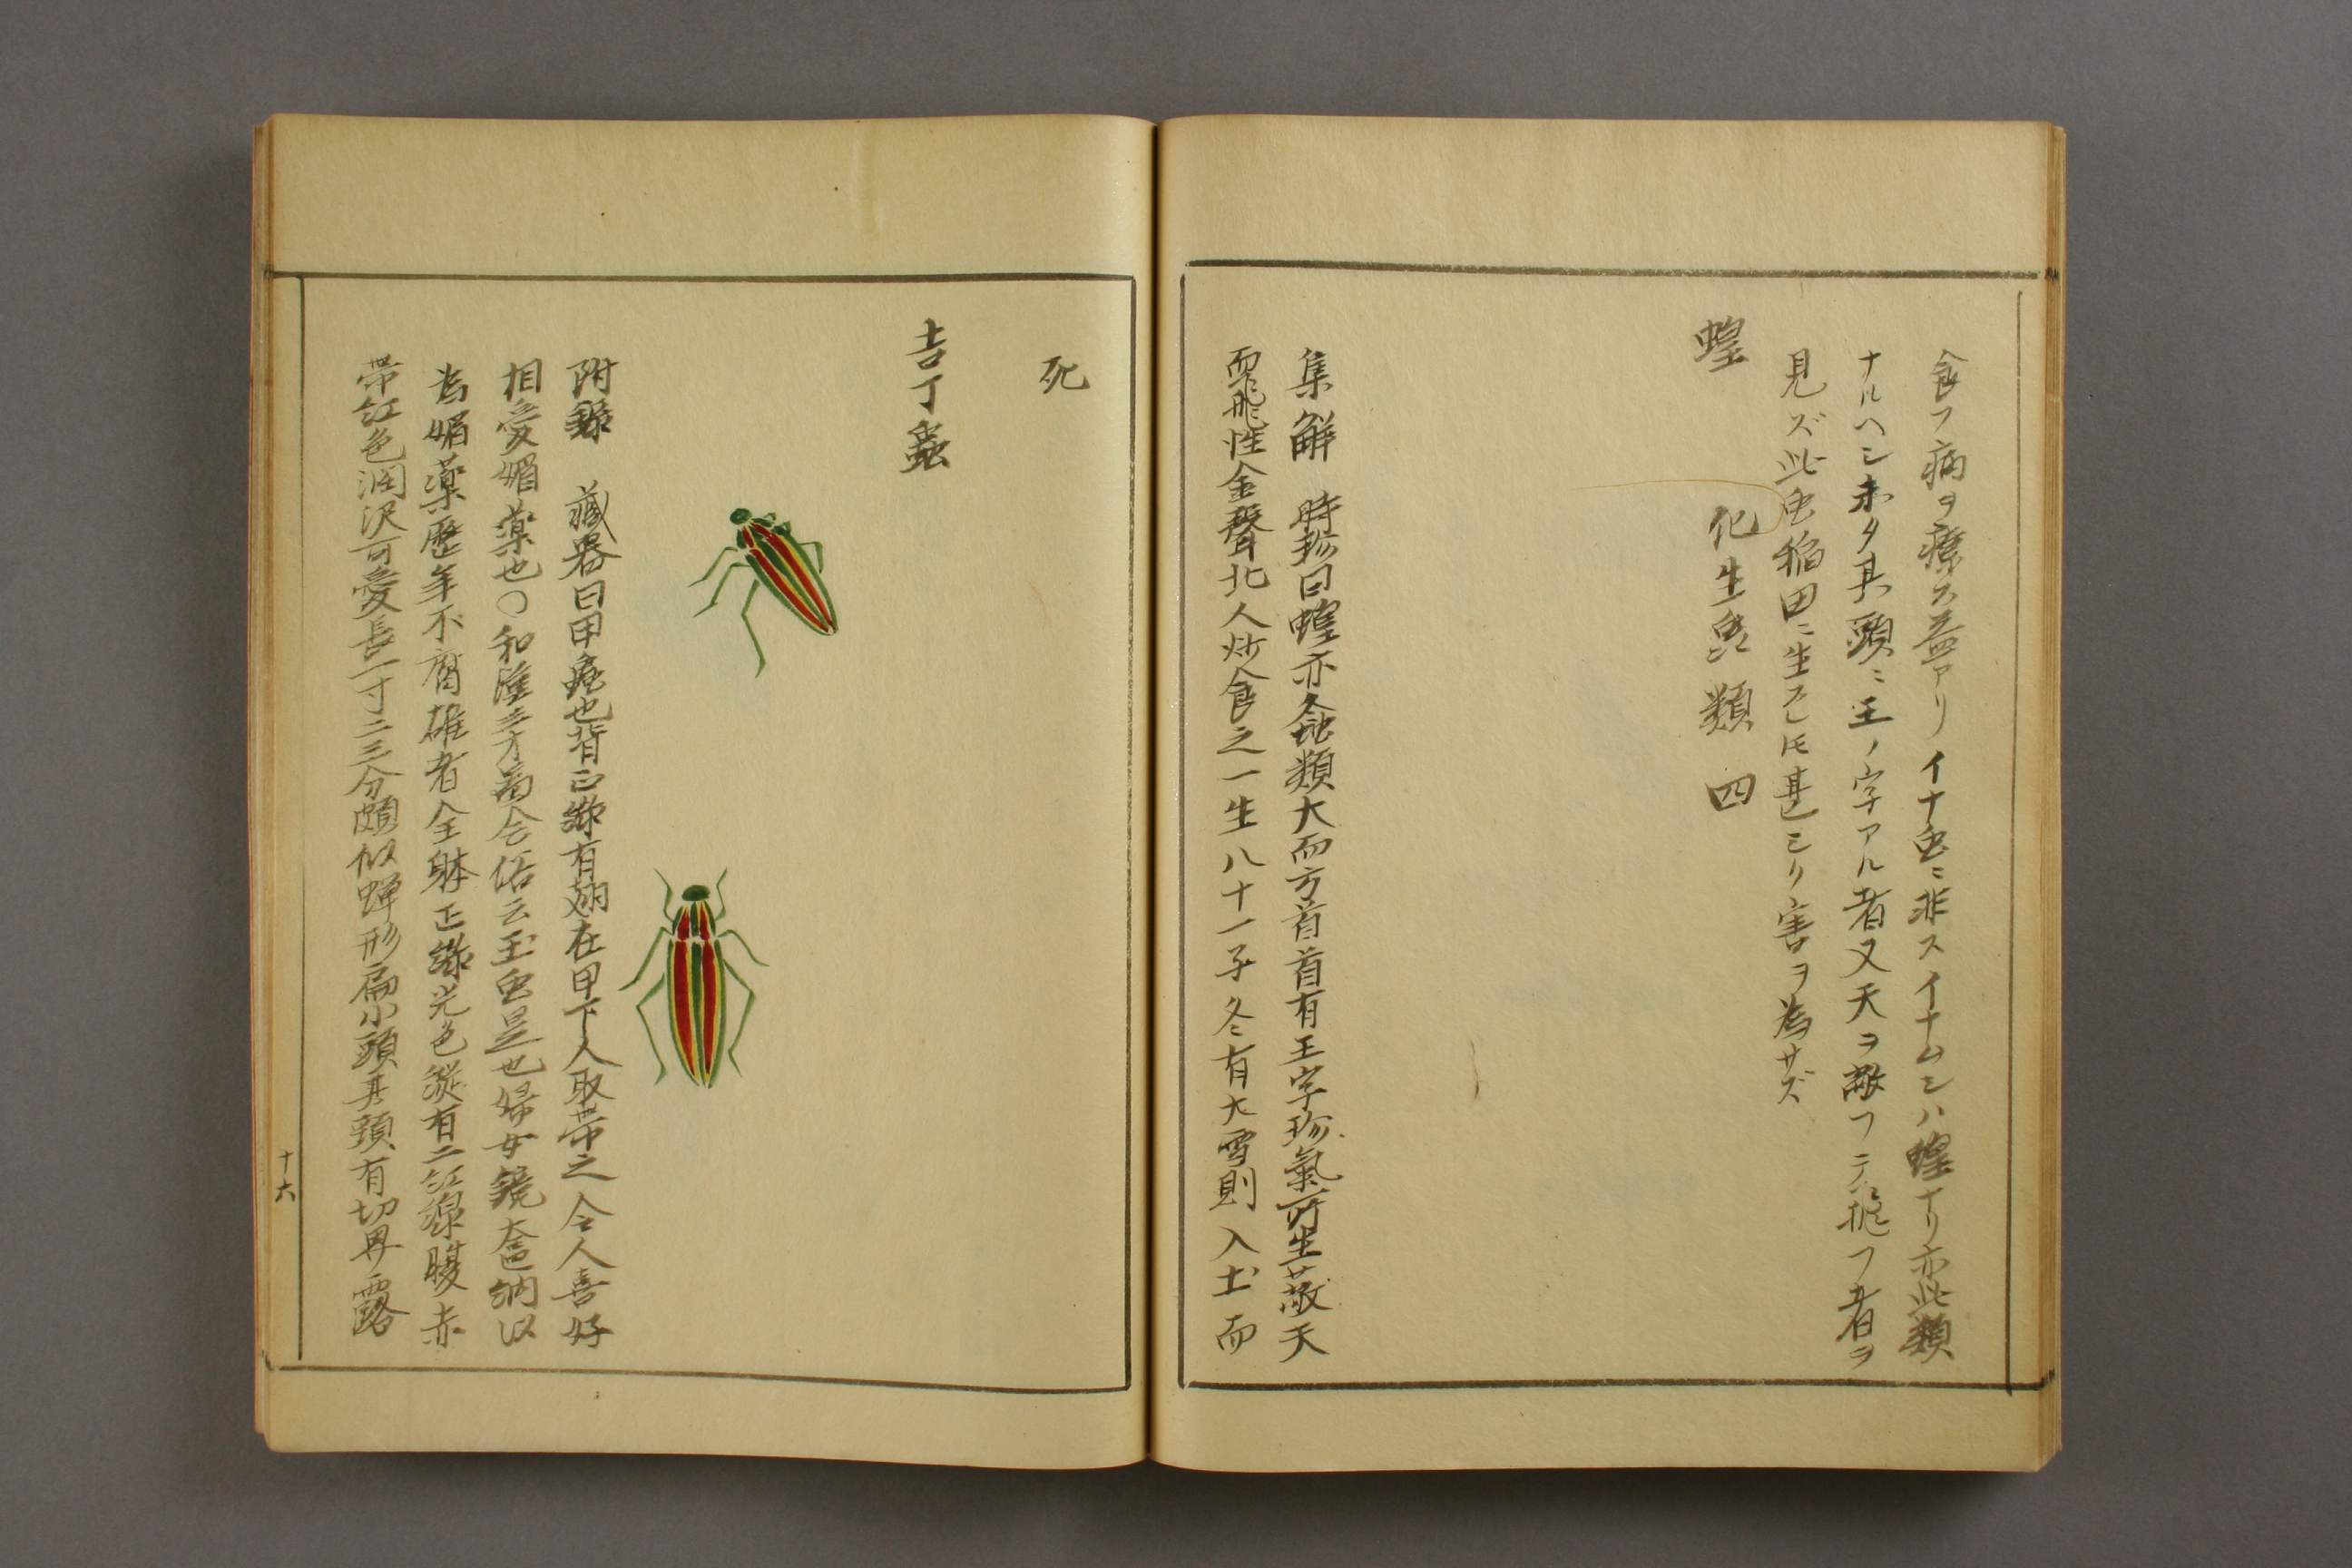 食フ病ヲ療ス益アリ　イナ虫ニ非スイナムシハ蝗ナリ亦此類
ナルヘシ未タ其頭ニ王ノ字アル者又天ヲ敵フニ施フ者ヲ
見ズ此虫稲田ニ生スレ𪜈甚ミク害ヲ為サズ
蝗　化生蟲類　四
集解　時珍曰蝗亦螽類大而方首首有王字沴氣所生蔽天
而飛性金聲北人炒食之一生八十一子冬有大雪則入土而
死
吉丁蟲
附録　蔵器曰甲蟲也背正緑有翅在甲下人取帯之令人喜好
相愛媚薬也〇和漢三才圖会俗云玉虫是也婦女鏡奩納以
為媚薬歴年不腐雄者全躰正緑光色縦有二紅線腹赤
帯紅色潤沢可愛長一寸二三分頗似蝉形扁小頭其頸有切界露
十六